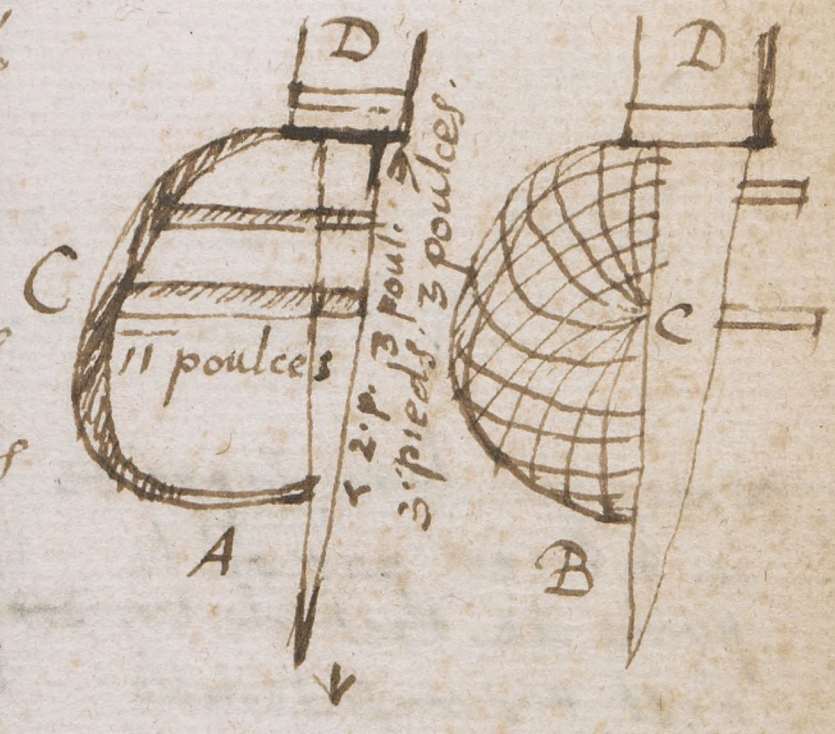 D
D
C
11 poulces
2. p. 3 poul.
3 pieds. 3 poulces.
C
A
B